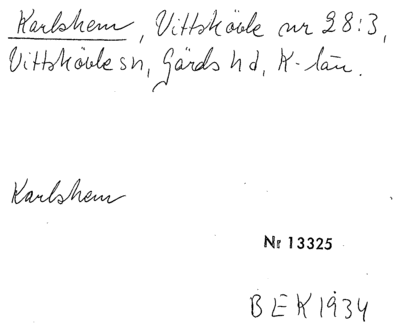 Karlshem, Vittskövle nr 28:3,
Vittskövle sn, Gärds hd, K-län.
Karlshem
Nr 13325
BEK1934